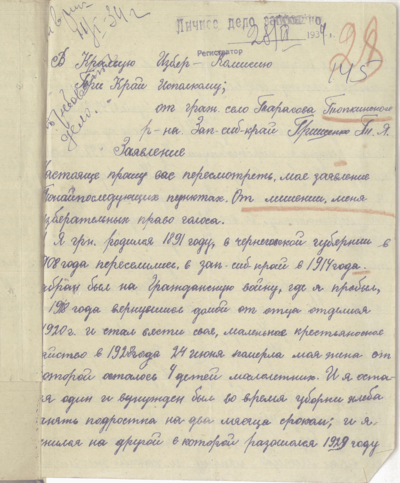 Личное дело
28/VI 1934
Регистратор
28
145
В Краевую Избер-Комиссию
При Край Исполкому;
от граж. село Тарасова Топкинского
р-на Зап-сиб-край Грищенко
Заявление
Настояще прошу вас пересмотреть, мае заявление
От лишении, меня
избирательных право голоса.
Я грн. родился 1891 году, в черниговской губернии в
1908 года переселились, в зап-сиб край в 1914 года
был на Гражданскую войну, где я пробыл,
года вернувшись домой от отца отделился
1920 г. и стал вести свое, маленькое крестьянское
в 1928 года 24 июня померла моя жена от
которой осталось 4 детей малолетних. И я оста-
я один и вынужден был во время уборки хлеба
нанять подростка на два месяца сроком; и я
на другой в которой разошолся 1929 году